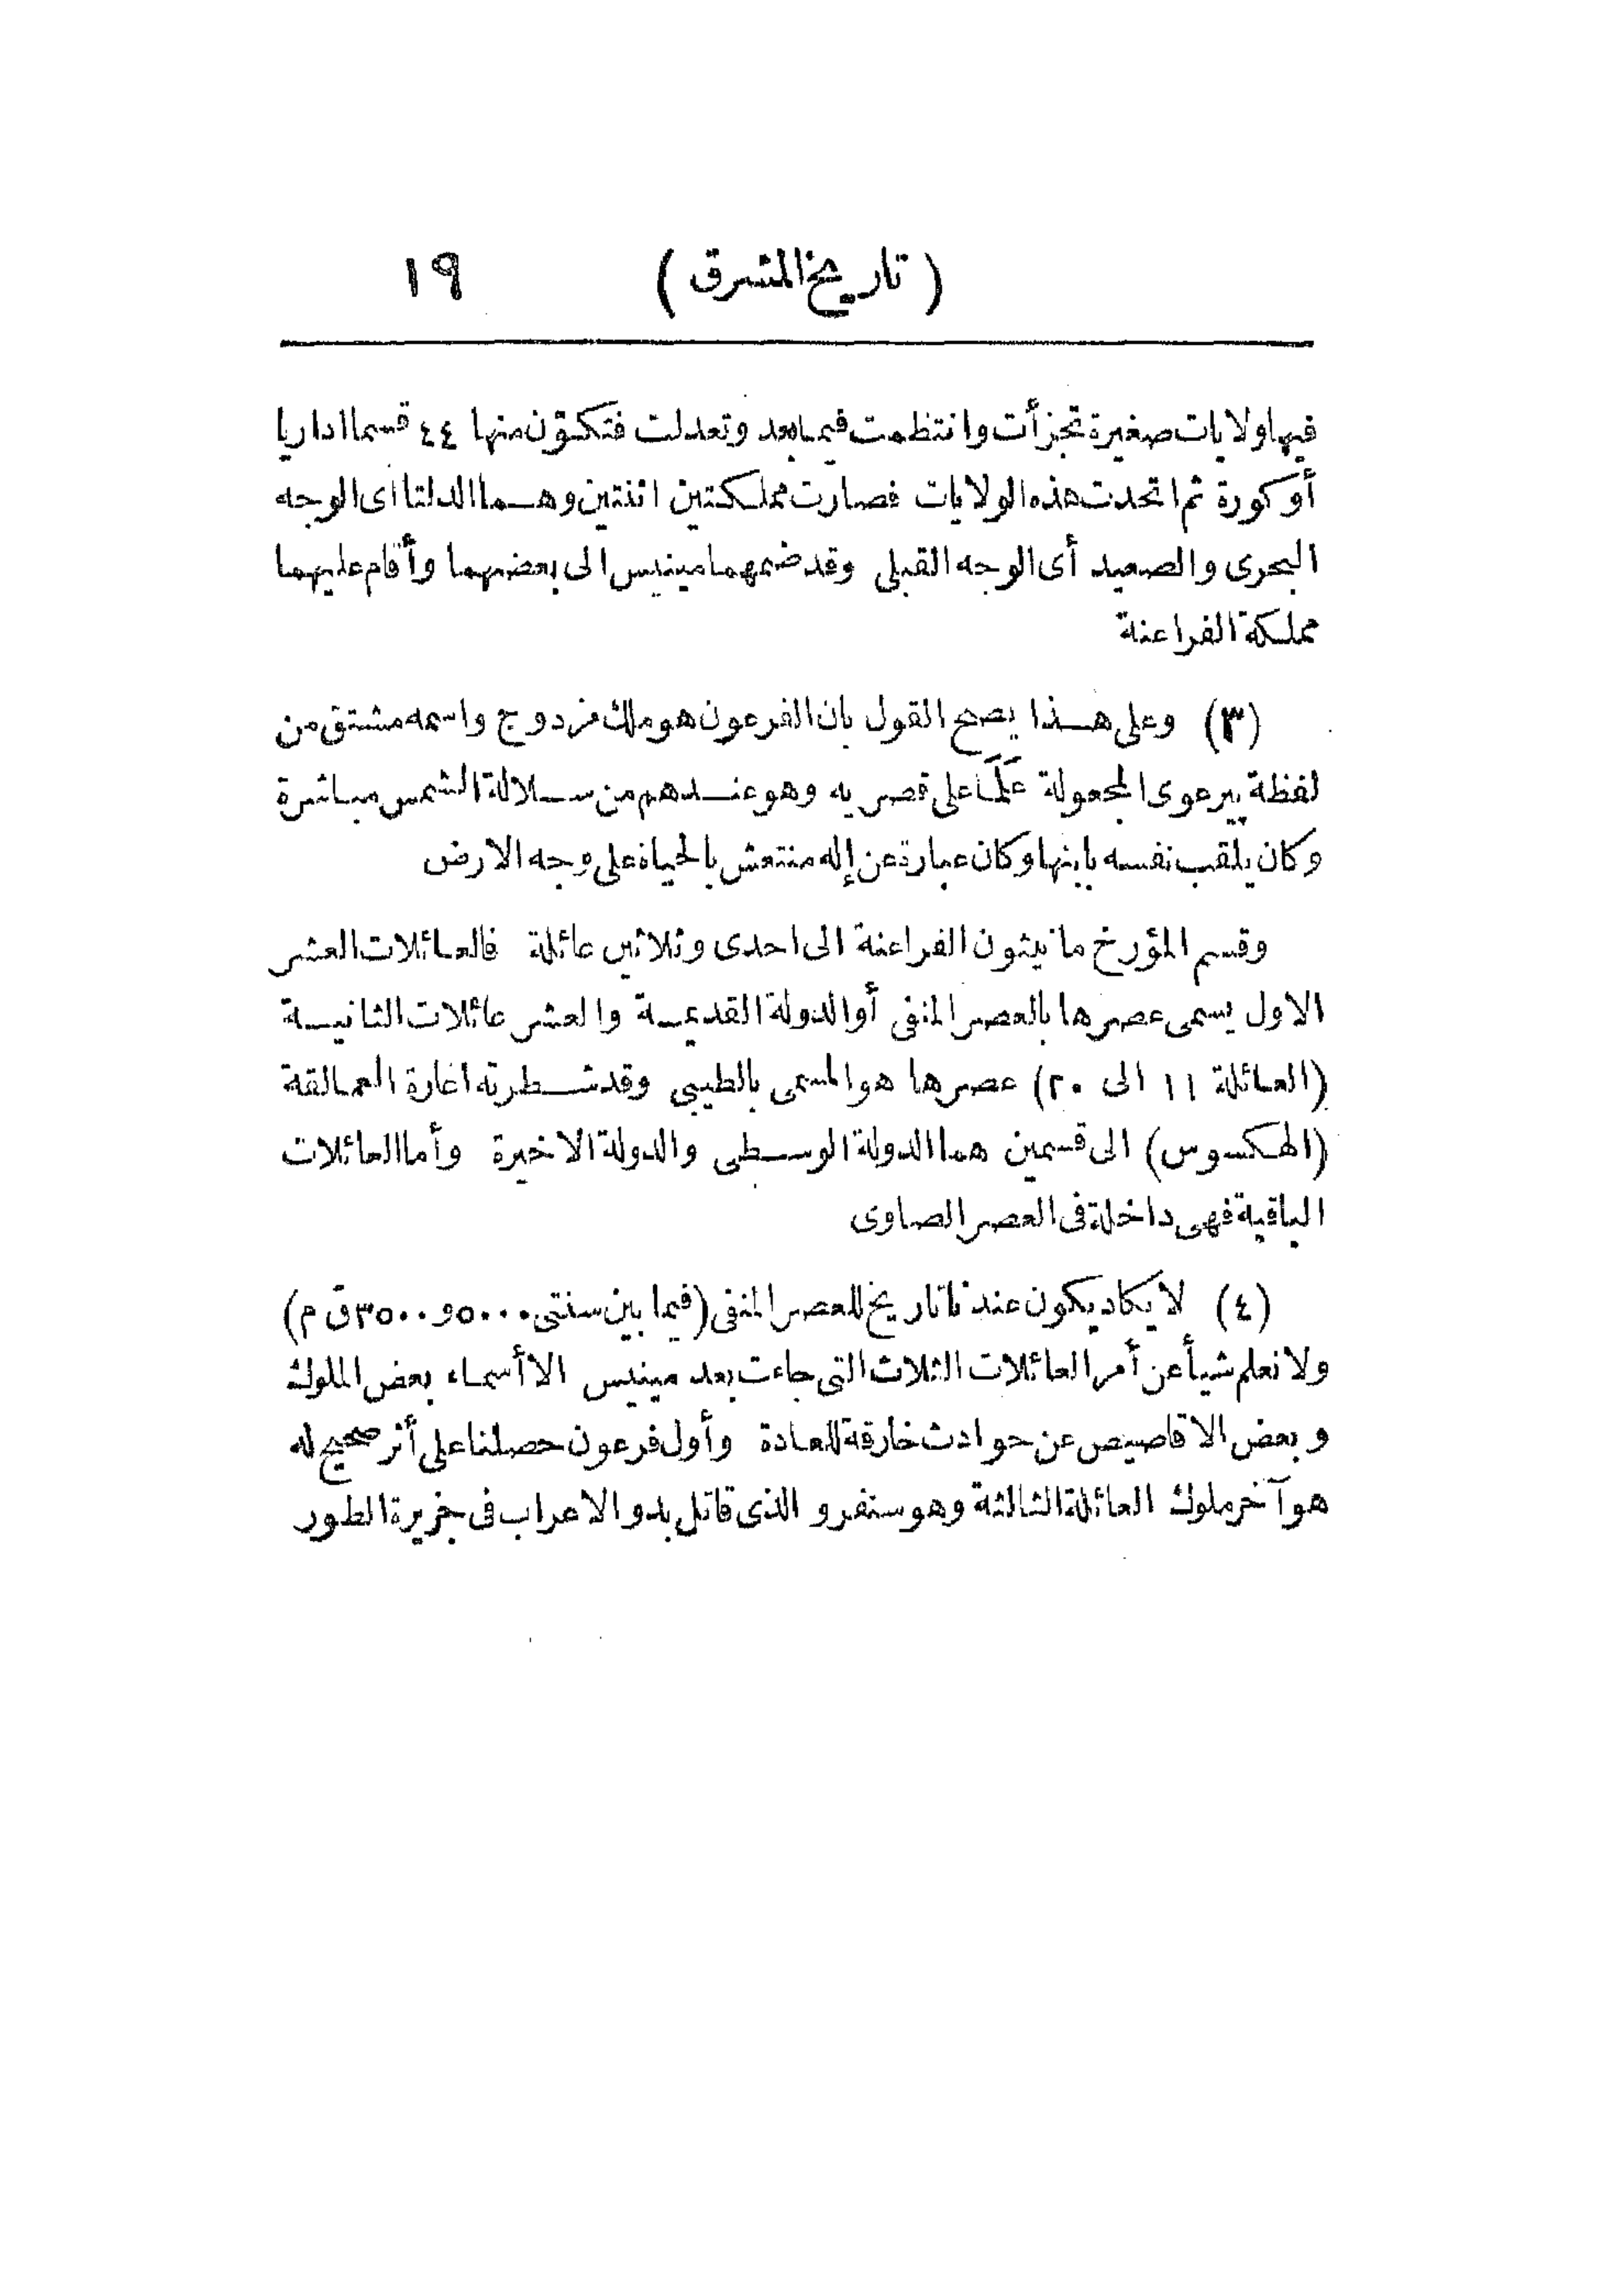 ( تاريخ المشرق ) ١٩
فيها ولايات صغيرة تجزأت وانتظمت فيما بعد وتعدلت فتكوّن منها ٤٤ قسما اداريا
أو كورة ثم اتحدت هذه الولايات فصارت مملكتين اثنتين وهما الدلتا اى الوجه
البحرى والصعيد أى الوجه القبلى وقد ضمهما مينيس الى بعضهما وأقام عليهما
مملكة الفراعنة
(٣) وعلى هذا يصح القول بان الفرعون هو ملك مزدوج واسمه مشتق من
لفظة پيرعوى المجعولة عَلَمًا على قصريه وهو عندهم من سلالة الشمس مباشرة
وكان يلقب نفسه بابنها وكان عبارة عن إله منتعش بالحياة على وجه الارض
وقسم المؤرخ مانيثون الفراعنة الى احدى وثلاثين عائلة فالعائلات العشر
الاول يسمى عصرها بالعصر المنفى أو الدولة القديمة والعشر عائلات الثانية
(العائلة ١١ الى ٢٠) عصرها هو المسمى بالطيبى وقد شطرته اغارة العمالقة
(الهكسوس) الى قسمين هما الدولة الوسطى والدولة الاخيرة وأما العائلات
الباقية فهى داخلة فى العصر الصاوى
(٤) لا يكاد يكون عندنا تاريخ للعصر المنفى (فيما بين سنتى ٥٠٠٠ و ٣٥٠٠ ق م)
ولا نعلم شيأ عن أمر العائلات الثلاث التى جاءت بعد مينيس الا أسماء بعض الملوك
وبعض الاقاصيص عن حوادث خارقة للعادة وأول فرعون حصلنا على أثر صحيح له
هو آخر ملوك العائلة الثالثة وهو سنفرو الذى قاتل بدو الاعراب فى جزيرة الطور